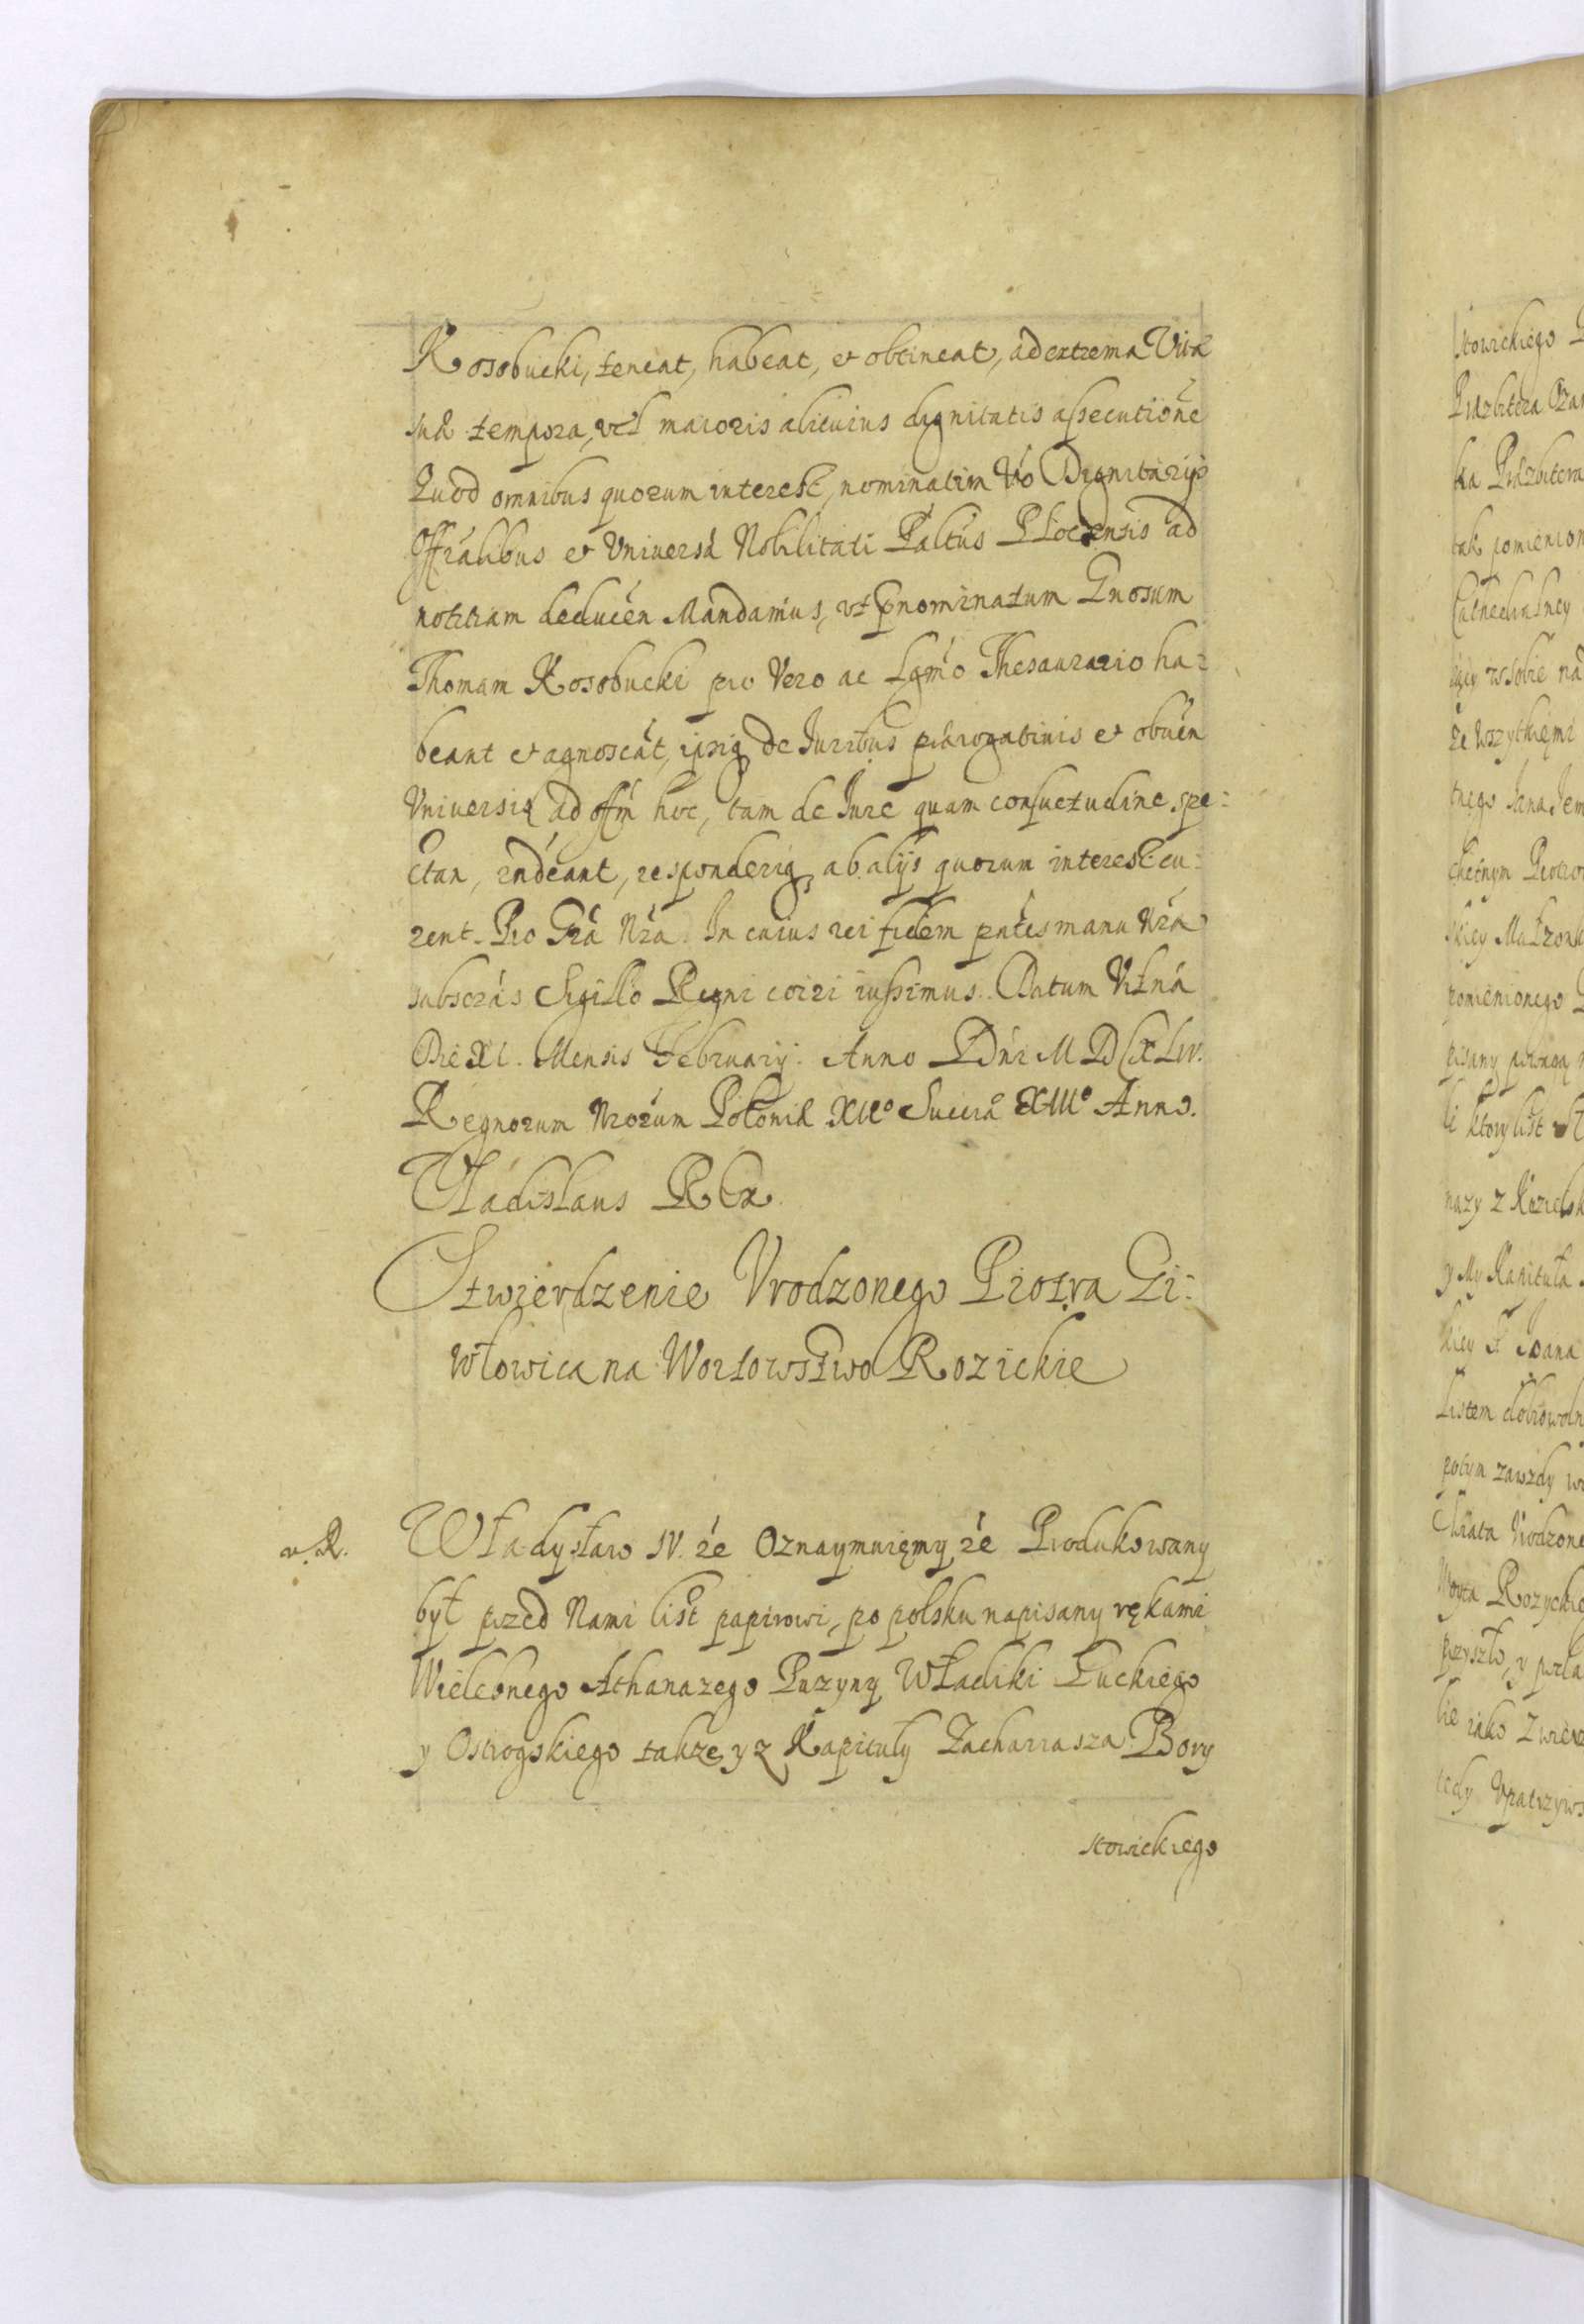 Kosobucki, teneat, habeat, et obtineat, ad extrema Vitæ
suæ tempora, vel maioris alicuius dignitatis assecutione
Quod omnibus quorum interest, nominatim Vo Dignitarijs
Offralibus et Vniversæ Nobilitati Paltus Plocensis ad
notitiam deducen Mandamus, vt pnominatum Gnosum
Thomam Kosobucki pro Vero ac Lgmo Thesaurario ha=
beant et agnoscat, ipsiq de Iuribus prærogativis et obuen
Vniversis ad offm hoc, tam de Iure quam consuetudine spe=
ctan, rndeant, responderiq ab alijs quorum interest cu=
rent. Pro Gra Nra. In cuius rei fidem pntes manu Nra
subscras Sigillo Regni coiri iussimus. Datum Vilnæ
Die XI. Mensis February. Anno Dni MDCXLIV.
Regnorum Nrorum Poloniæ XIIo Sueciæ XIIIo Anno.
Vladislaus Rex.
Stwierdzenie Vrodzonego Piotra Gi=
włowica na Wortowstwo Rozickie
v. R.
Władysław IV. etc Oznaymuięmy że Produkowany
był przed Nami list papirowi, po polsku napisany rękami
Wielebnego Athanazego Puzyny Władiki Łuckiego
y Ostrogskiego także y z Kapituły Zachariasza Bory
stowickiego
stowickiego
Præzbitera
ka Præzbitera
tak pomienion
Cathedralney
że wszytkiemi
tnego Jana Jem
chetnym Piotro
skiey Małzonk
pomienionego
pisany
li ktory list
nazy z Kozielsk
y My Kapituła
Listem dobrowoln
potym zawzdy
Vrodzone
Woyta Rozyckie
przyszło, y
lie iako
tedy Vpatrzyws